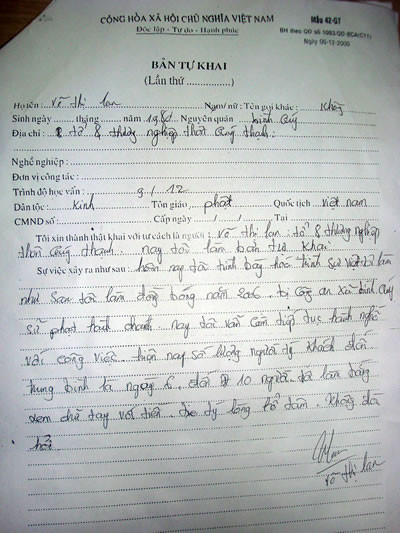 CỘNG HÒA XÃ HỘI CHỦ NGHĨA VIỆT NAM
Độc lập - Tự do - Hạnh phúc
Mẫu 42-ĐT
BH theo QĐ số 1083/QĐ-BCA(C11)
Ngày 06-12-2000
BẢN TỰ KHAI
(Lần thứ ...............)
Họ tên : Võ thị lan Nam/ nữ : Tên gọi khác : Không
Sinh ngày ........ tháng ........ năm 1980 Nguyên quán bình Quý
Địa chỉ : tổ 8 thôn Quý thạnh.
Nghề nghiệp :
Đơn vị công tác :
Trình độ học vấn : 9/12
Dân tộc : Kinh Tôn giáo phật Quốc tịch việt nam
CMND số : Cấp ngày / / Tại
Tôi xin thành thật khai với tư cách là người : võ thị lan : tổ 8
thôn Quý thạnh. nay tôi làm bản tự khai
Sự việc xảy ra như sau : hôm nay tôi trình bày sự việc tôi làm
như sau tôi làm năm 2006. bị công an xã bình Quý
sử phạt hành chánh. nay tôi vẫn còn tiếp tục hành nghề
với công việc. hiện nay số lượng người khách đến
trung bình là ngày 6. đến 10 người. tôi làm bằng
xem chỉ tay với tiền tùy lòng. Không đòi
hỏi.
võ thị lan